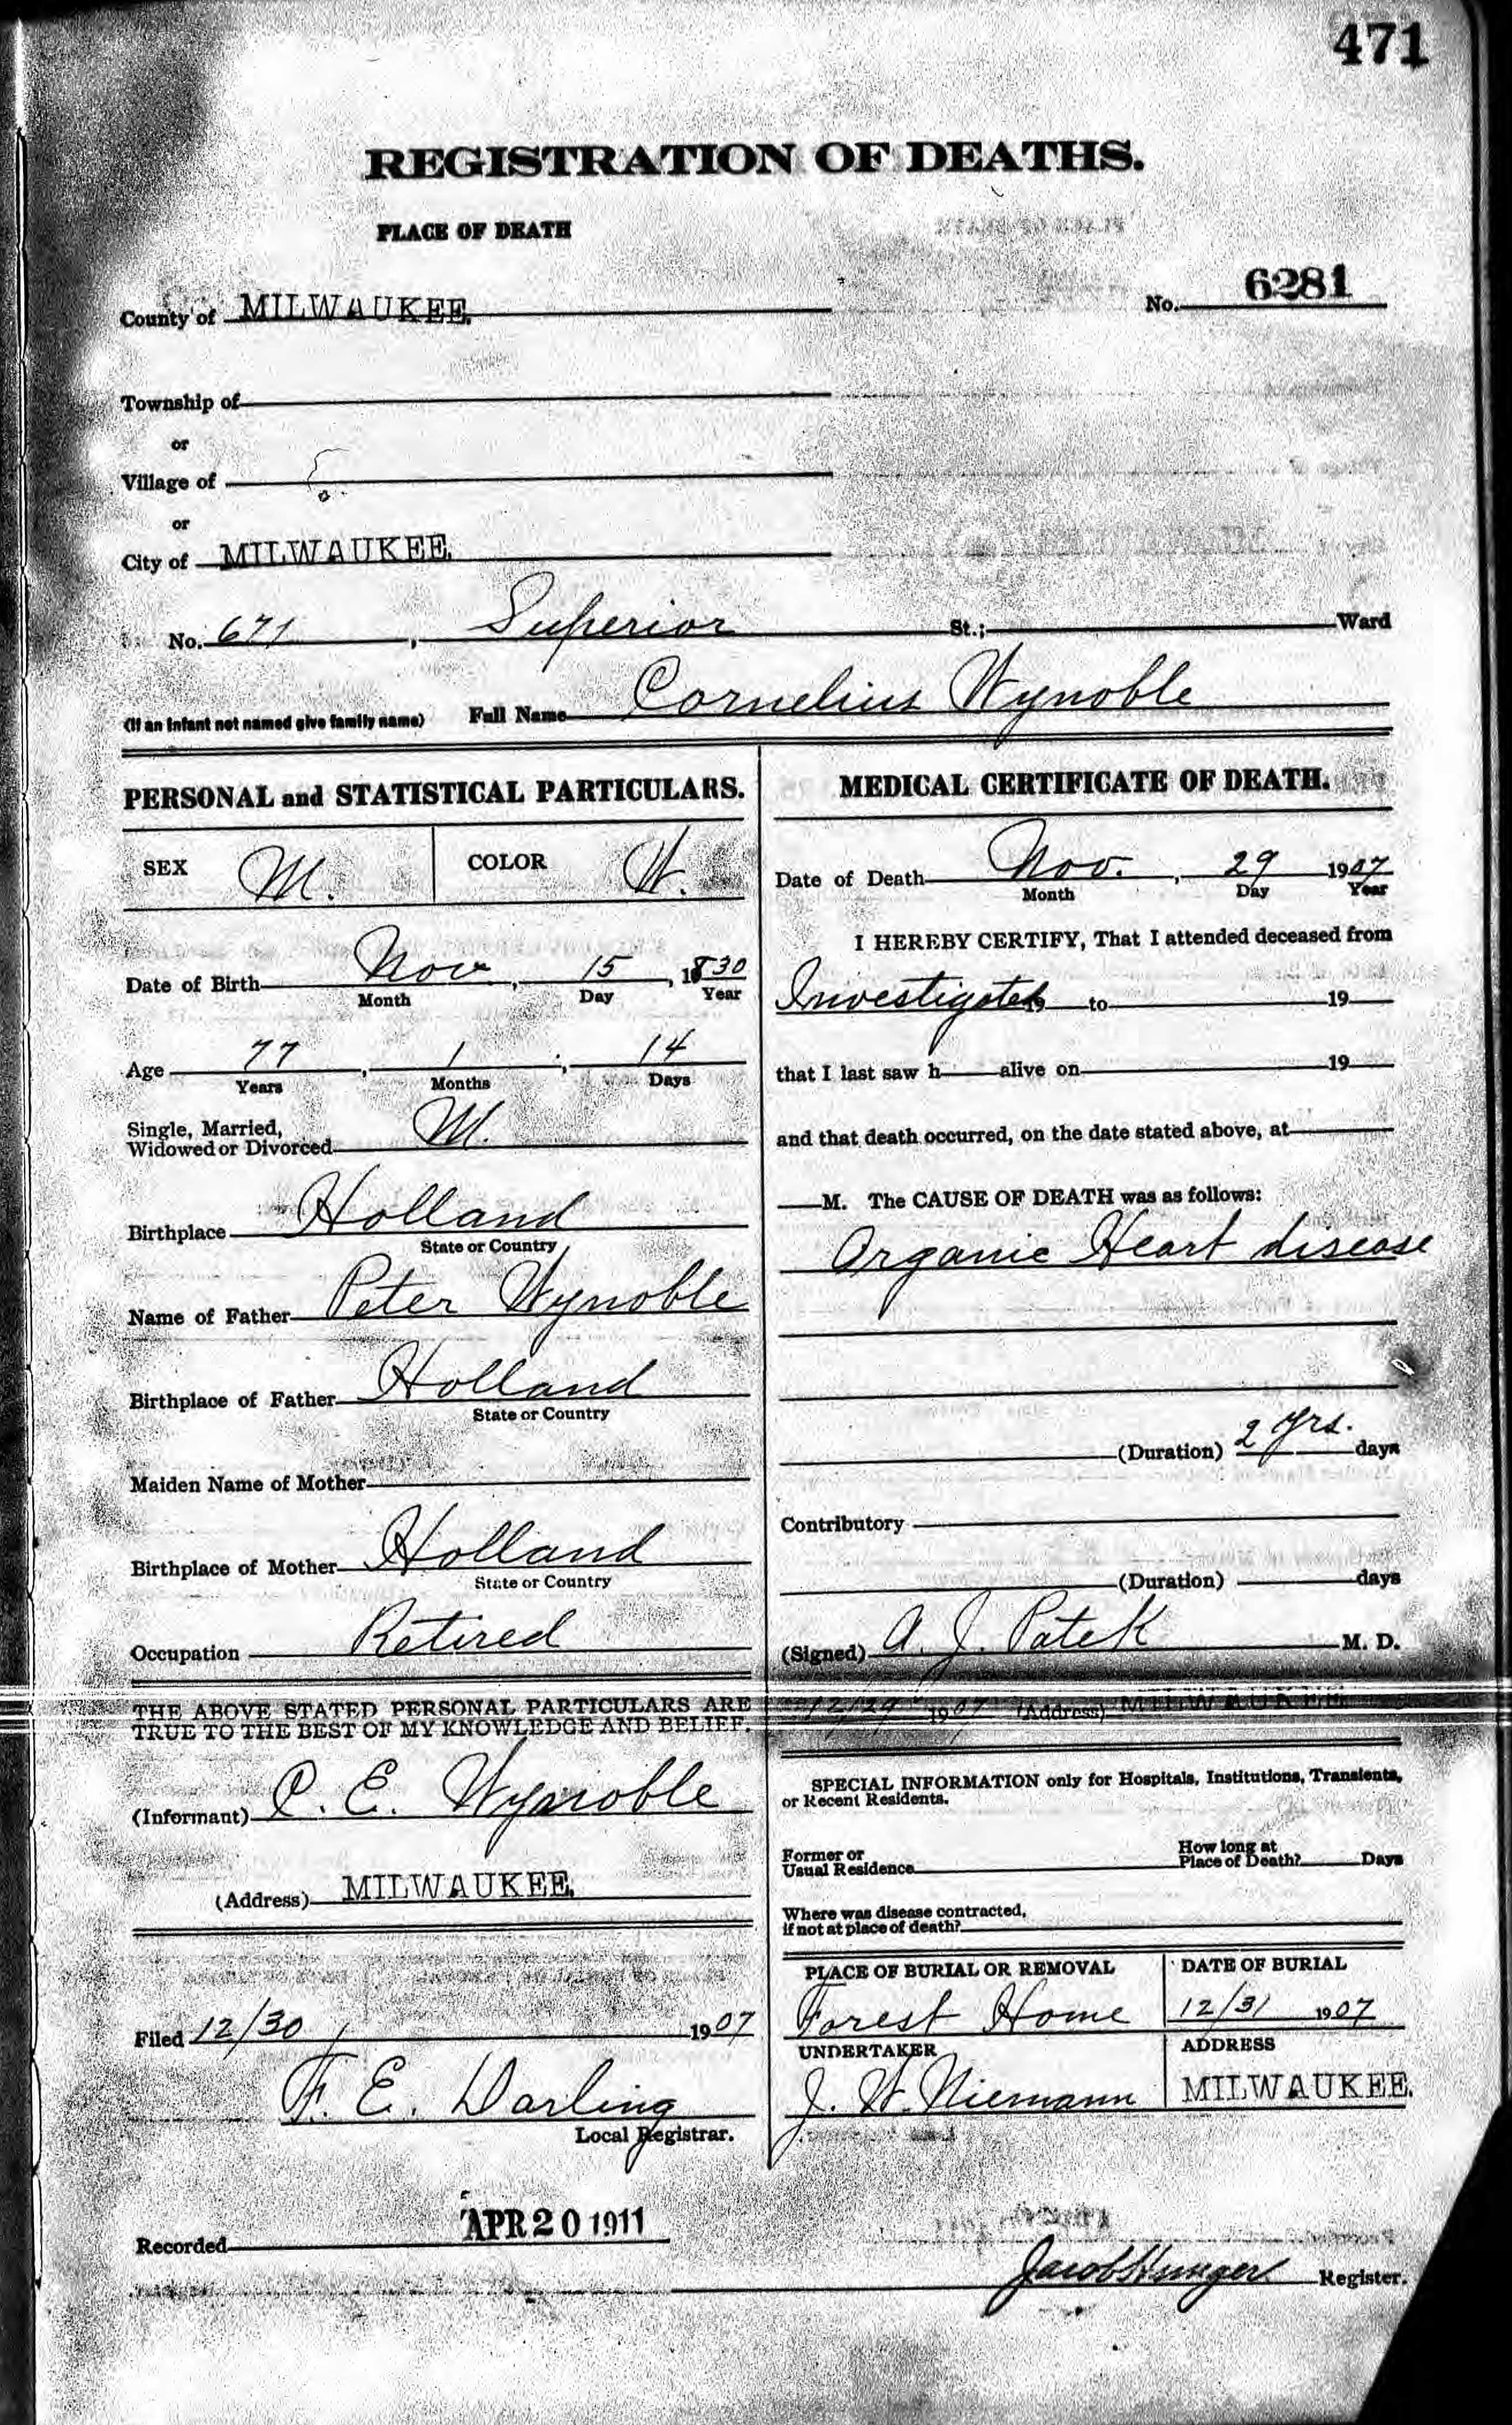 471
REGISTRATION OF DEATHS.
PLACE OF DEATH
County of MILWAUKEE.
No. 6281
Township of
or
Village of
or
City of MILWAUKEE.
No. 671, Superior St.; Ward
(If an infant not named give family name) Full Name Cornelius Wynoble
PERSONAL and STATISTICAL PARTICULARS.
SEX M. COLOR W.
Date of Birth Nov, 15, 1830
Month Day Year
Age 77, 1, 14
Years Months Days
Single, Married,
Widowed or Divorced M.
Birthplace Holland
State or Country
Name of Father Peter Wynoble
Birthplace of Father Holland
State or Country
Maiden Name of Mother
Birthplace of Mother Holland
State or Country
Occupation Retired
THE ABOVE STATED PERSONAL PARTICULARS ARE
TRUE TO THE BEST OF MY KNOWLEDGE AND BELIEF.
(Informant) C. E. Wynoble
(Address) MILWAUKEE.
Filed 12/30, 1907
F. E. Darling
Local Registrar.
MEDICAL CERTIFICATE OF DEATH.
Date of Death Nov., 29 1907
Month Day Year
I HEREBY CERTIFY, That I attended deceased from
Investigated 19 to 19
that I last saw h alive on 19
and that death occurred, on the date stated above, at
M. The CAUSE OF DEATH was as follows:
Organic Heart disease
(Duration) 2 yrs. days
Contributory
(Duration) days
(Signed) A. J. Patek M. D.
12/29 1907 (Address) MILWAUKEE
SPECIAL INFORMATION only for Hospitals, Institutions, Transients,
or Recent Residents.
Former or
Usual Residence
How long at
Place of Death? Days
Where was disease contracted,
if not at place of death?
PLACE OF BURIAL OR REMOVAL DATE OF BURIAL
Forest Home 12/31 1907
UNDERTAKER ADDRESS
J. W. Niemann MILWAUKEE.
Recorded APR 20 1911
Jacob Hunger Register.